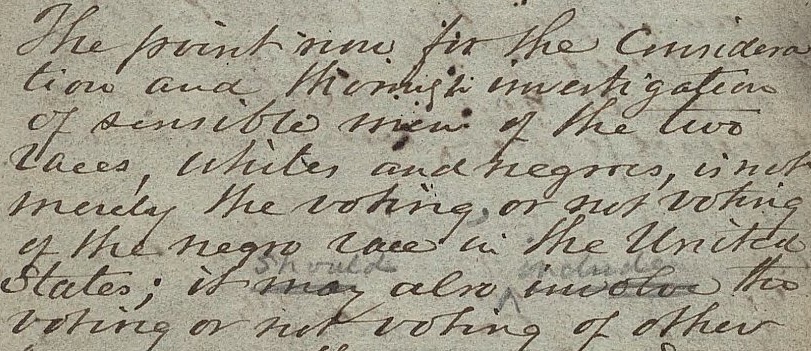 The point now for the Considera
tion and thorough investigation
of sensible men of the two
races, whites and negroes, is not
merely the voting or not voting
of the negro race in the United
should include
States; it may also involve the
voting or not voting of other